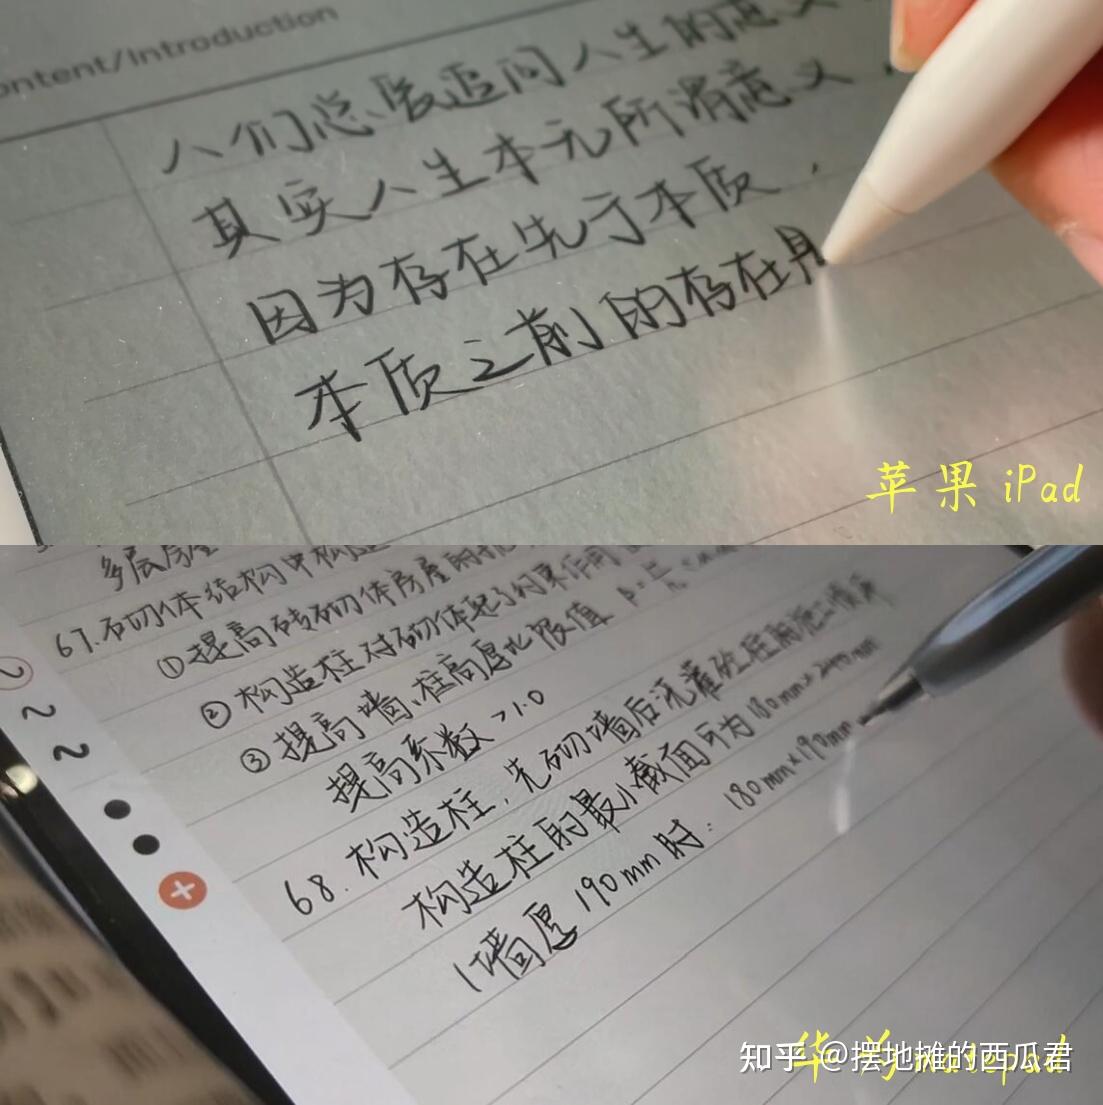 ontent/Introduction
人们总爱追问人生的意义
其实人生本无所谓意义，
因为存在先于本质，
本质之前的存在是
苹果 iPad
多层房屋
67.砌体结构中构造
①提高砖砌体房屋的抗
②构造柱对砌体起了约束作用
③提高墙、柱高厚比限值
提高系数 >1.0
68.构造柱，先砌墙后浇灌
构造柱的最小截面可为180mm×240mm
(墙厚190mm时：180mm×190mm
华为 matepad
知乎 @摆地摊的西瓜君